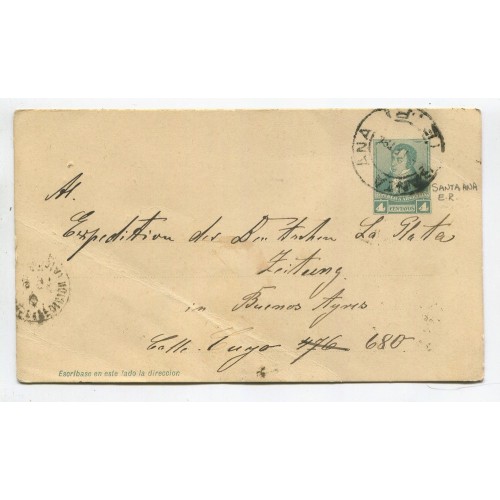 SANTA ANA
E.R.
4 CENTAVOS 4
An.
Expedition der Deutschen La Plata
Zeitung
in Buenos Ayres
Calle Cuyo 476 680.
Escríbase en este lado la direccion